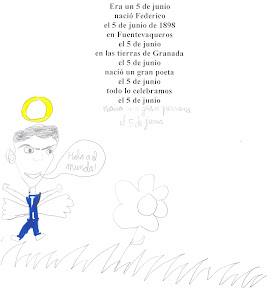 Era un 5 de junio
nació Federico
el 5 de junio de 1898
en Fuentevaqueros
el 5 de junio
en las tierras de Granada
el 5 de junio
nació un gran poeta
el 5 de junio
todo lo celebramos
el 5 de junio
nació un gran persona
el 5 de junio
Hola al
mundo!